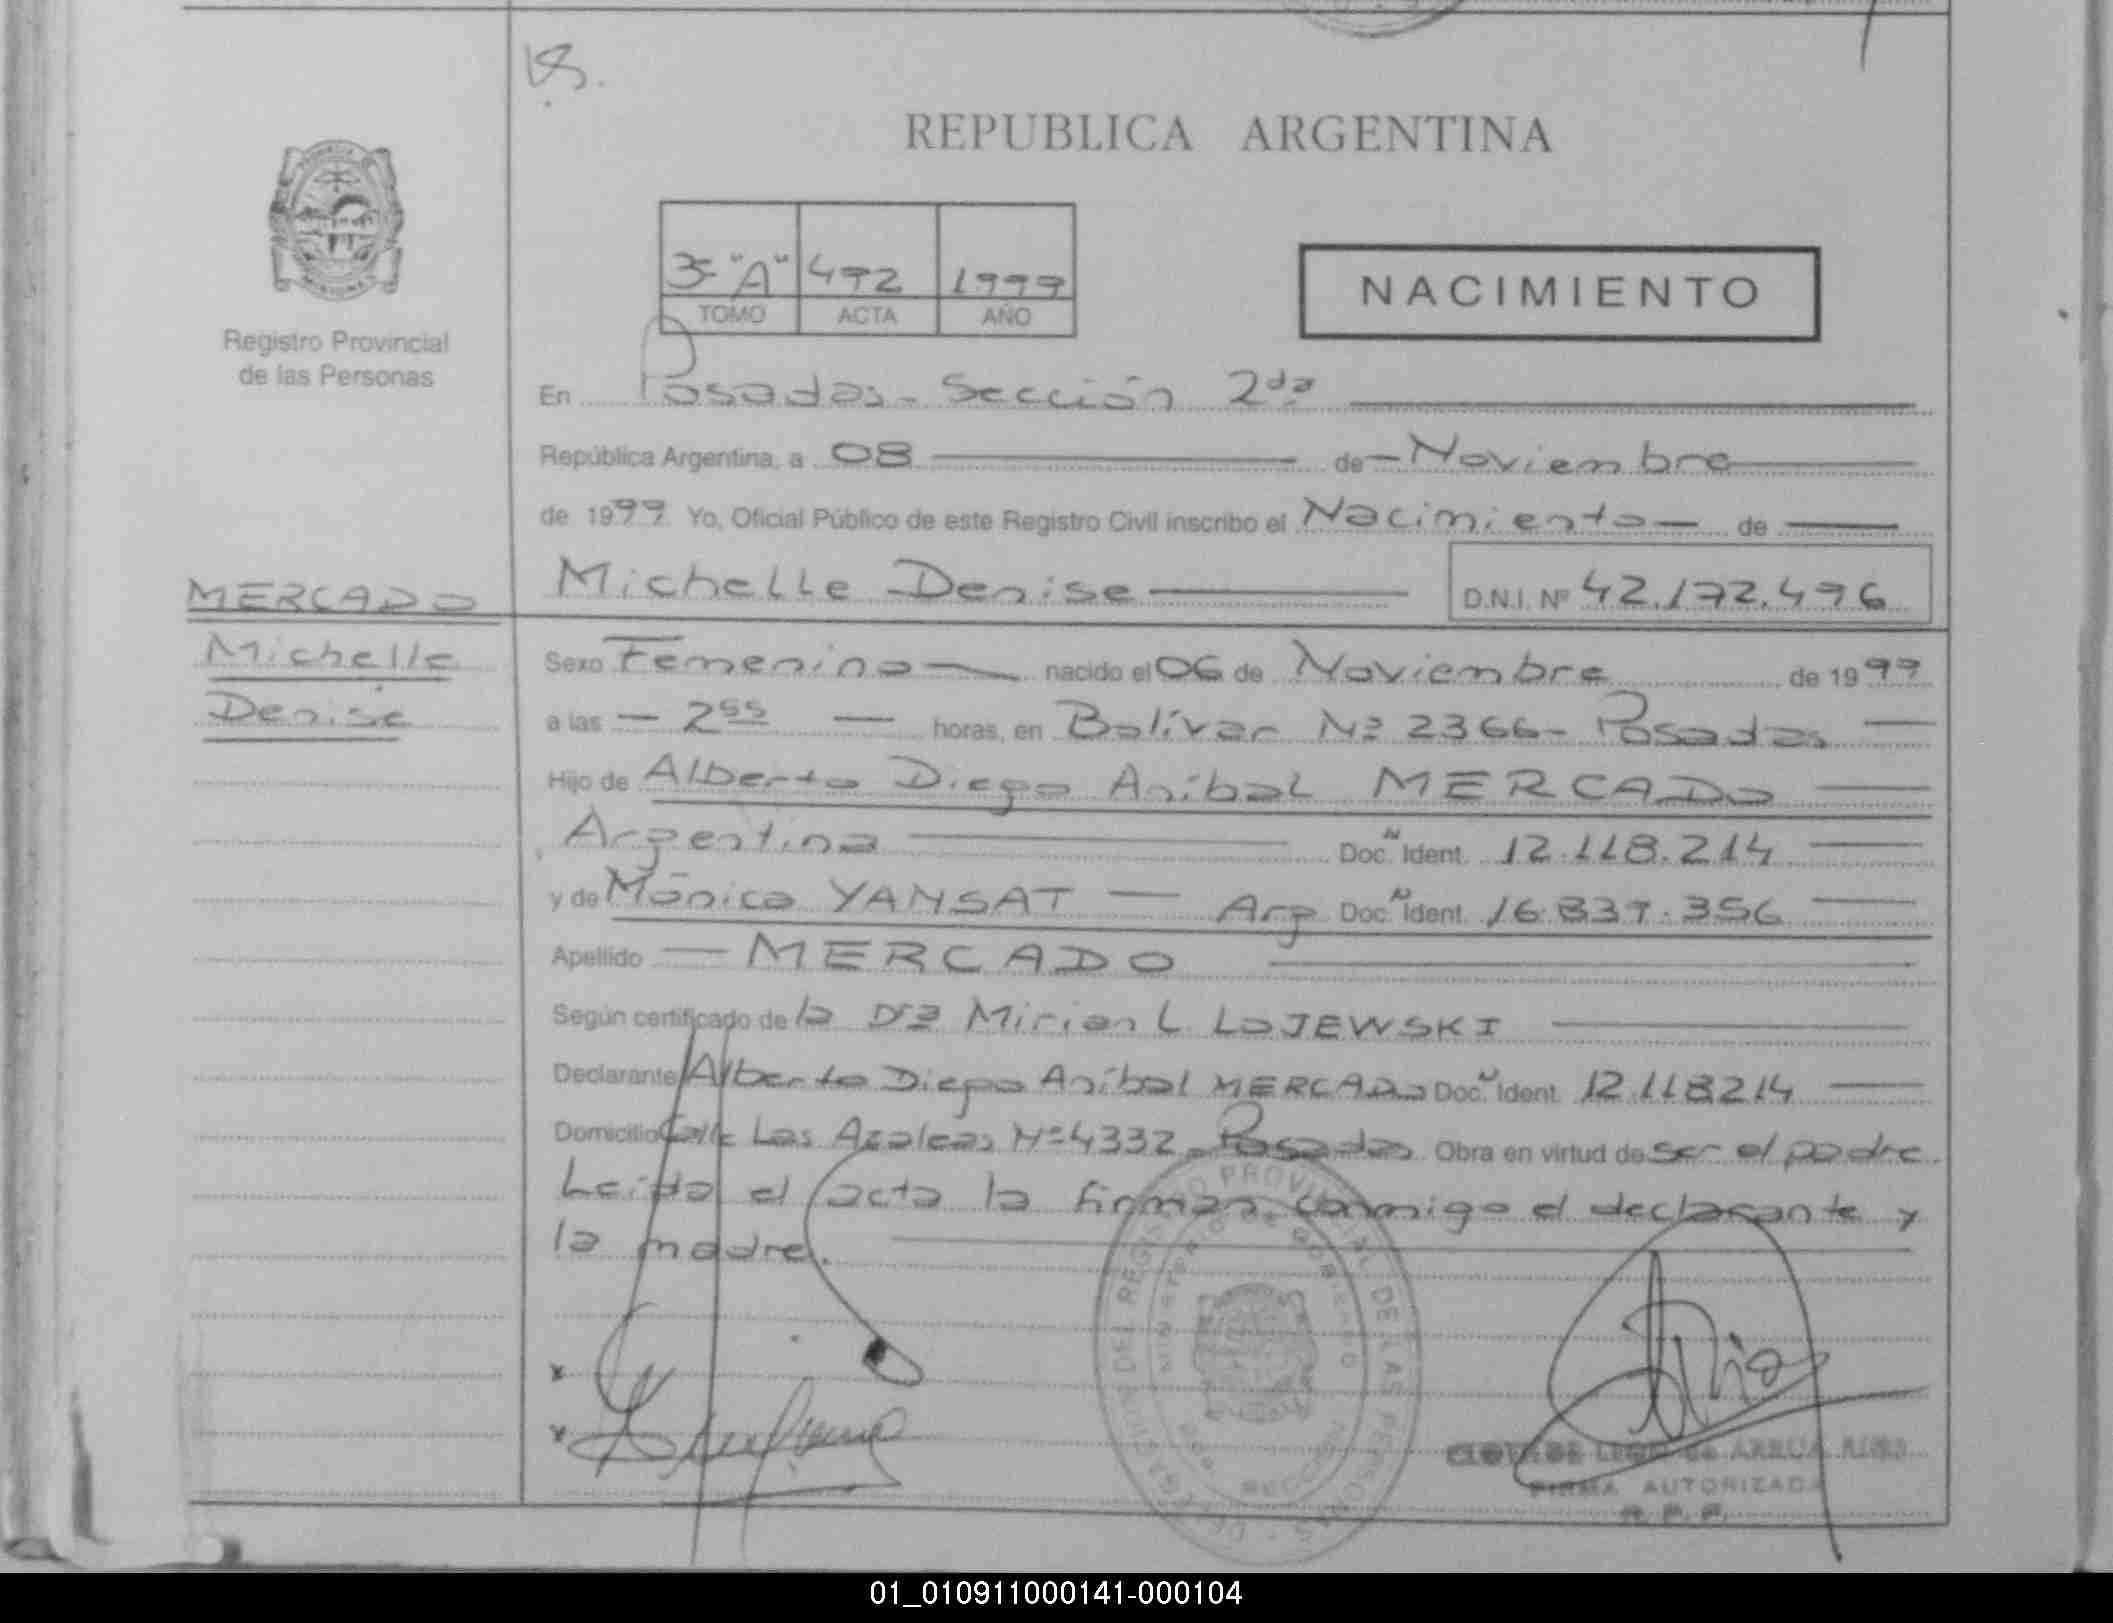 REPUBLICA ARGENTINA
3= "A" 492 1999
TOMO ACTA AÑO
NACIMIENTO
Registro Provincial
de las Personas
En Posadas - Sección 2da
República Argentina, a 08 de Noviembre
de 1999 Yo, Oficial Público de este Registro Civil inscribo el Nacimiento de
Michelle Denise D.N.I. Nº 42.172.496
MERCADO
Michelle
Denise
Sexo Femenino nacido el 06 de Noviembre de 1999
a las 2 55 horas, en Bolívar Nº 2366 - Posadas
Hijo de Alberto Diego Aníbal MERCADO
Argentina Doc. Ident. 12.118.214
y de Mónica YANSAT Arg Doc. Ident. 16.837.356
Apellido MERCADO
Según certificado de la Dra Mirian L LaJEWSKI
Declarante Alberto Diego Aníbal MERCADO Doc. Ident. 12.118214
Domicilio Calle Las Azaleas Nº 4332 - Posadas Obra en virtud de ser el padre
Leída el acta la firman conmigo el declarante y
la madre.
DELEGACION DEL REGISTRO PROVINCIAL DE LAS PERSONAS
MINISTERIO DE GOBIERNO
FIRMA AUTORIZADA
R. P. P.
01_010911000141-000104